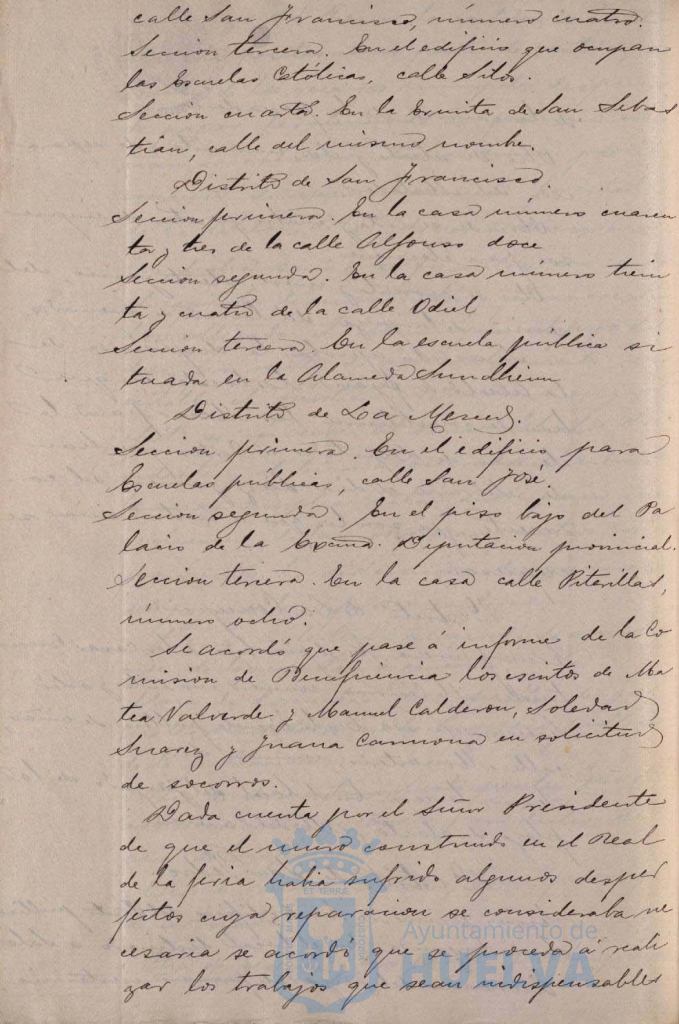 calle San Francisco, número cuatro.
Sección tercera. En el edificio que ocupan
las Escuelas Católicas, calle Silos.
Sección cuarta. En la Ermita de San Sebas
tián, calle del mismo nombre.
Distrito de San Francisco.
Sección primera. En la casa número cuaren
ta y tres de la calle Alfonso doce
Sección segunda. En la casa número trein
ta y cuatro de la calle Odiel
Sección tercera. En la escuela pública si
tuada en la Alameda Sundheim
Distrito de La Merced.
Sección primera. En el edificio para
Escuelas públicas, calle San José.
Sección segunda. En el piso bajo del Pa
lacio de la Excma. Diputación provincial.
Sección tercera. En la casa calle Piterillas,
número ocho.
Se acordó que pase á informe de la Co
misión de Beneficencia los escritos de Ma
tea Valverde y Manuel Calderon, Soledad
Suarez y Juana Carmona en solicitud
de socorros.
Dada cuenta por el Señor Presidente
de que el muro construido en el Real
de la feria habia sufrido algunos desper
fectos cuya reparacion se consideraba ne
cesaria se acordó que se proceda á reali
zar los trabajos que sean indispensables
Ayuntamiento de
HUELVA